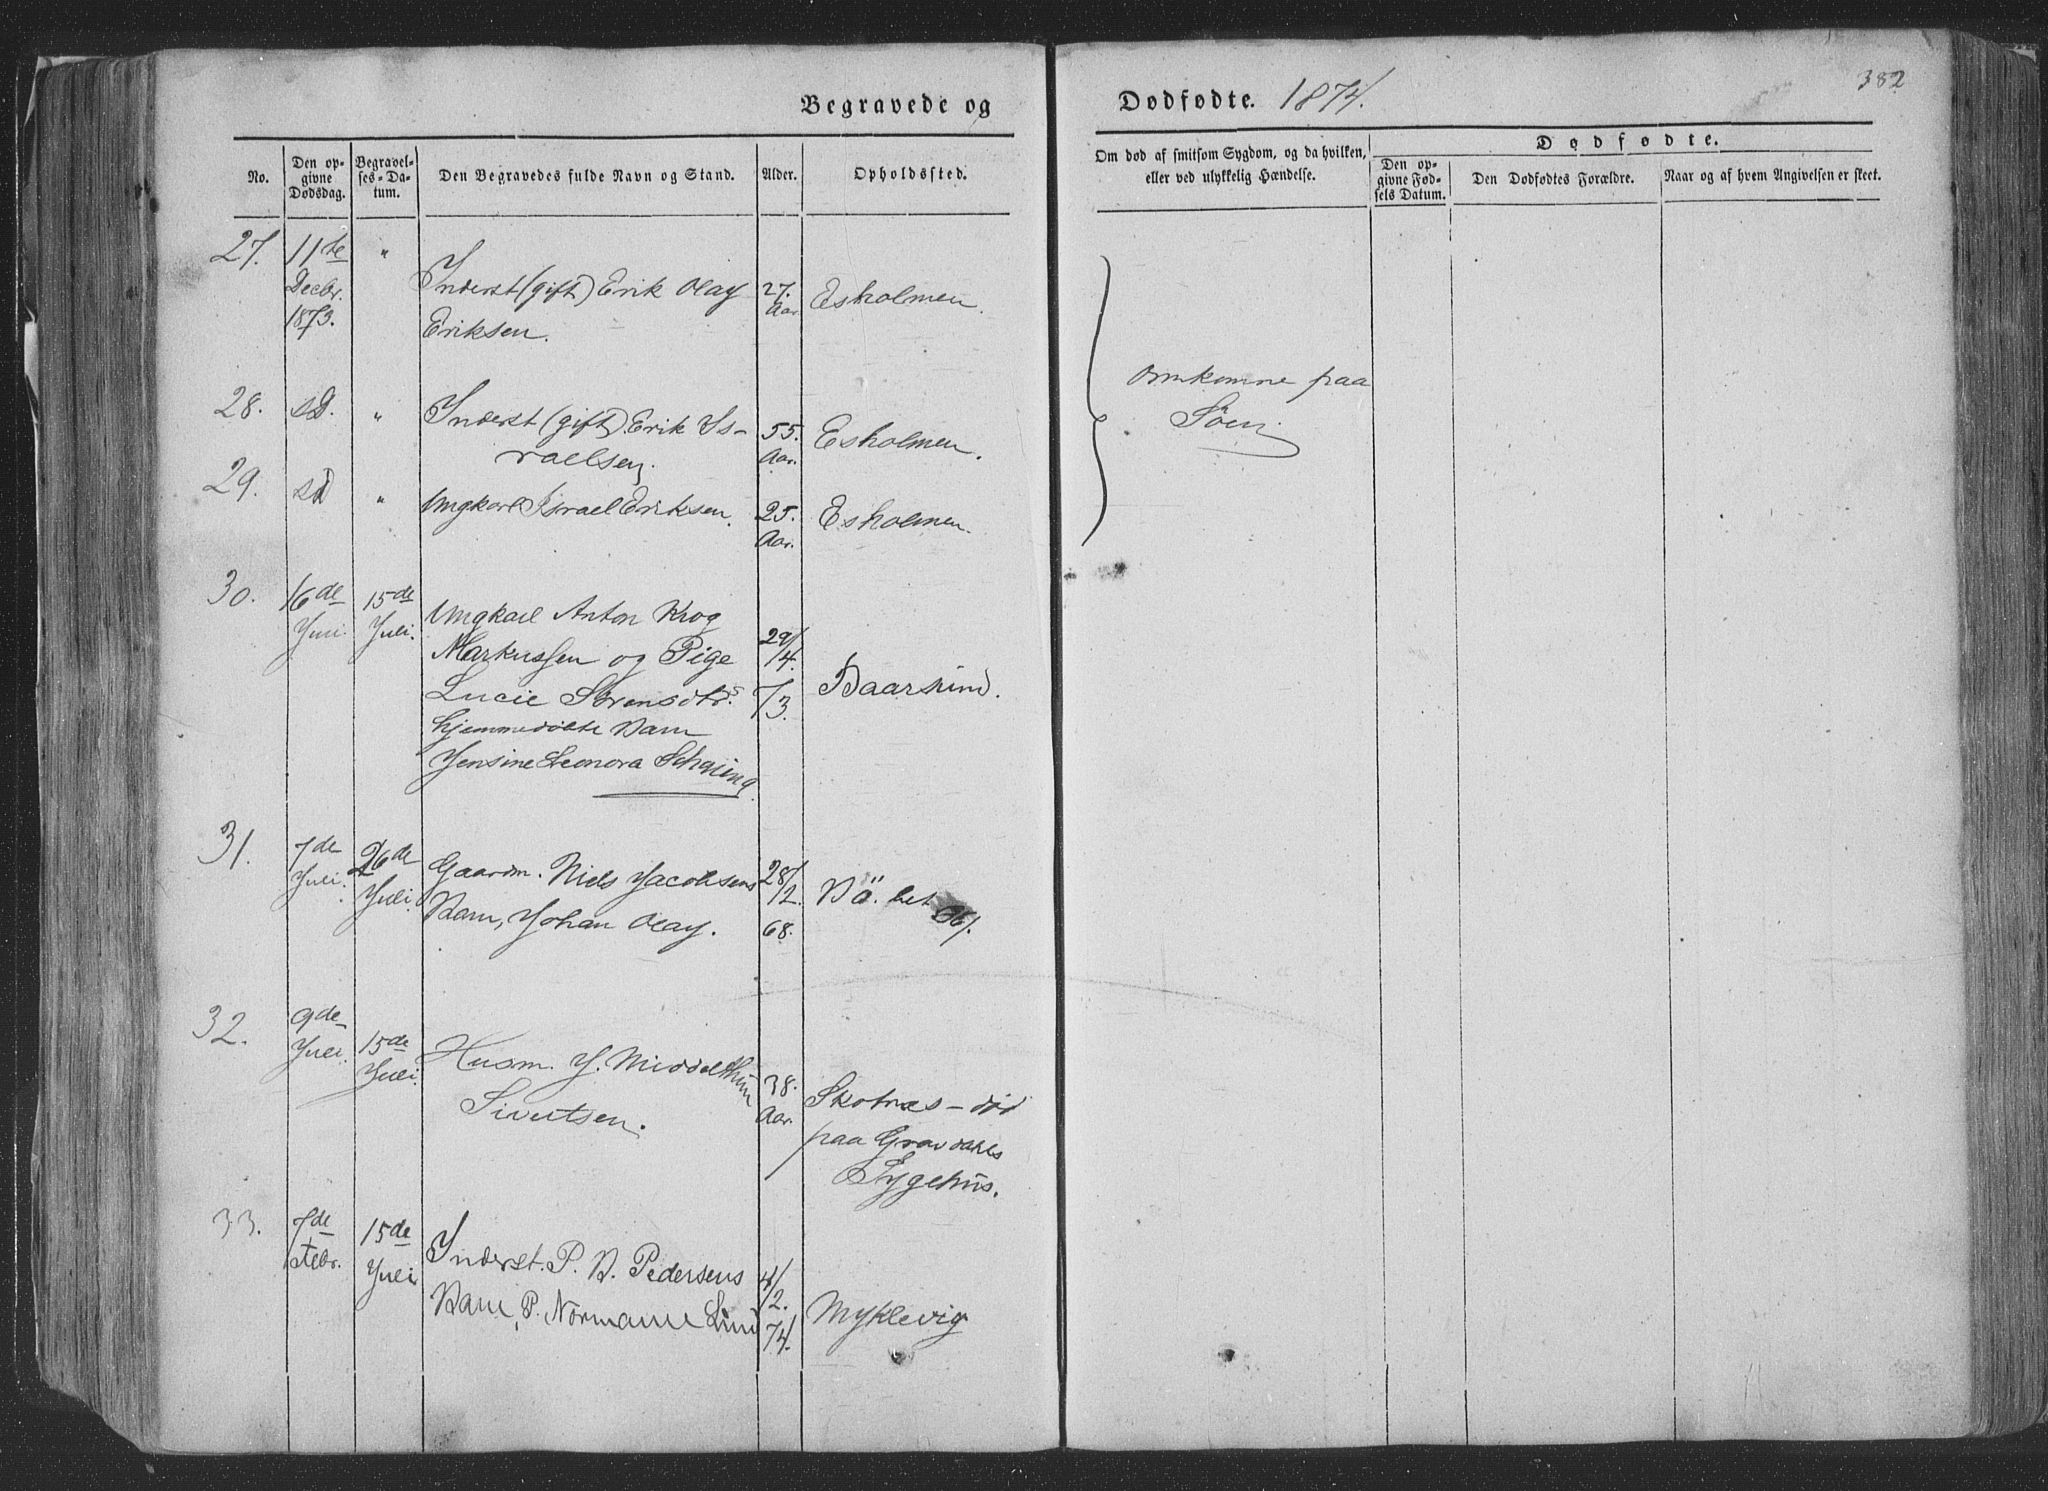 Begravede og
Dødfødte. 1874.
382
No.
Den op-
givne
Dødsdag.
Begravel-
ses-Da-
tum.
Den Begravedes fulde Navn og Stand.
Alder.
Opholdssted.
Om død af smitsom Sygdom, og da hvilken,
eller ved ulykkelig Hændelse.
Dødfødte.
Den op-
givne Fød-
sels Datum.
Den Dødfødtes Forældre.
Naar og af hvem Angivelsen er skeet.
27. 11te "
Decbr.
1873.
Inderst (gift) Erik Olay
Eriksen.
27.
Aar
Esholmen.
28. sD. "
Inderst (gift) Erik Is-
raelsen.
55.
Aar.
Esholmen.
29. sD "
Ungkarl Israel Eriksen.
25.
Aar.
Esholmen.
Omkomne paa
Søen
30. 16de 15de
Juni. Juli.
Ungkarl Anton Krog
Markussen og Pige
Lucie Sørensdtrs
hjemmedøbte Barn
Jensine Leonora Schøning.
29/
/4.
73.
Baarsund.
31. 7de 26de
Juli. Juli.
Gaardm. Niels Jacobsens
Barn, Johan Olay.
28/
/2.
68.
Bö. bet 36/.
32. 9de 15de
Juli. Juli.
Husm. J. Middelthun
Sivertsen.
38.
Aar.
Skotnæs – død
paa Gravdahls
Sygehus.
33. 7de 15de
Febr. Juli
Inderst. P. B. Pedersens
Barn, P. Normann Lund
4/
/2.
74.
Myklevig